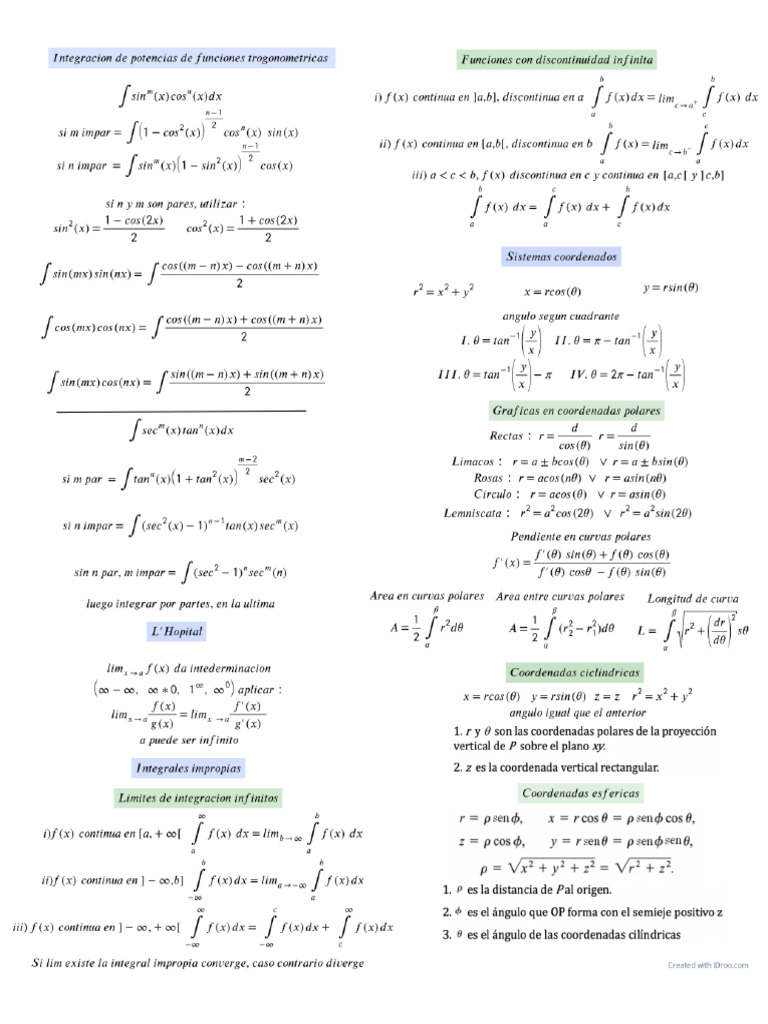 Integracion de potencias de funciones trogonometricas
∫ sin^m(x)cos^n(x)dx
si m impar = ∫(1 − cos²(x))^((n−1)/2) cos^n(x) sin(x)
si n impar = ∫ sin^m(x)(1 − sin²(x))^((n−1)/2) cos(x)
si n y m son pares, utilizar :
sin²(x) = (1 − cos(2x))/2 cos²(x) = (1 + cos(2x))/2
∫ sin(mx)sin(nx) = ∫ (cos((m − n)x) − cos((m + n)x))/2
∫ cos(mx)cos(nx) = ∫ (cos((m − n)x) + cos((m + n)x))/2
∫ sin(mx)cos(nx) = ∫ (sin((m − n)x) + sin((m + n)x))/2
∫ sec^m(x)tan^n(x)dx
si m par = ∫ tan^n(x)(1 + tan²(x))^((m−2)/2) sec²(x)
si n impar = ∫ (sec²(x) − 1)^(n−1) tan(x) sec^m(x)
sin n par, m impar = ∫ (sec² − 1)^n sec^m(n)
luego integrar por partes, en la ultima
L'Hopital
lim x→a f(x) da intederminacion
(∞ − ∞, ∞ * 0, 1^∞, ∞^0) aplicar :
lim x→a f(x)/g(x) = lim x→a f'(x)/g'(x)
a puede ser infinito
Integrales impropias
Limites de integracion infinitos
i)f(x) continua en [a, +∞[ ∫_a^∞ f(x) dx = lim b→∞ ∫_a^b f(x) dx
ii)f(x) continua en ] − ∞,b] ∫_−∞^b f(x)dx = lim a→−∞ ∫_a^b f(x)dx
iii) f(x) continua en ] − ∞, +∞[ ∫_−∞^∞ f(x)dx = ∫_−∞^c f(x)dx + ∫_c^∞ f(x)dx
Si lim existe la integral impropia converge, caso contrario diverge
Funciones con discontinuidad infinita
i) f(x) continua en ]a,b], discontinua en a ∫_a^b f(x)dx = lim c→a⁺ ∫_c^b f(x) dx
ii) f(x) continua en [a,b[, discontinua en b ∫_a^b f(x) = lim c→b⁻ ∫_a^c f(x)dx
iii) a < c < b, f(x) discontinua en c y continua en [a,c[ y ]c,b]
∫_a^b f(x) dx = ∫_a^c f(x) dx + ∫_c^b f(x)dx
Sistemas coordenados
r² = x² + y² x = rcos(θ) y = rsin(θ)
angulo segun cuadrante
I. θ = tan⁻¹(y/x) II. θ = π − tan⁻¹(y/x)
III. θ = tan⁻¹(y/x) − π IV. θ = 2π − tan⁻¹(y/x)
Graficas en coordenadas polares
Rectas : r = d/cos(θ) r = d/sin(θ)
Limacos : r = a ± bcos(θ) ∨ r = a ± bsin(θ)
Rosas : r = acos(nθ) ∨ r = asin(nθ)
Circulo : r = acos(θ) ∨ r = asin(θ)
Lemniscata : r² = a²cos(2θ) ∨ r² = a²sin(2θ)
Pendiente en curvas polares
f'(x) = (f'(θ) sin(θ) + f(θ) cos(θ))/(f'(θ) cosθ − f(θ) sin(θ))
Area en curvas polares Area entre curvas polares Longitud de curva
A = 1/2 ∫_α^β r²dθ A = 1/2 ∫_α^β (r₂² − r₁²)dθ L = ∫_α^β √(r² + (dr/dθ)²) sθ
Coordenadas ciclindricas
x = rcos(θ) y = rsin(θ) z = z r² = x² + y²
angulo igual que el anterior
1. r y θ son las coordenadas polares de la proyección
vertical de P sobre el plano xy.
2. z es la coordenada vertical rectangular.
Coordenadas esfericas
r = ρ sen ϕ, x = r cos θ = ρ sen ϕ cos θ,
z = ρ cos ϕ, y = r sen θ = ρ sen ϕ sen θ,
ρ = √(x² + y² + z²) = √(r² + z²).
1. ρ es la distancia de P al origen.
2. ϕ es el ángulo que OP forma con el semieje positivo z
3. θ es el ángulo de las coordenadas cilíndricas
Created with IDroo.com